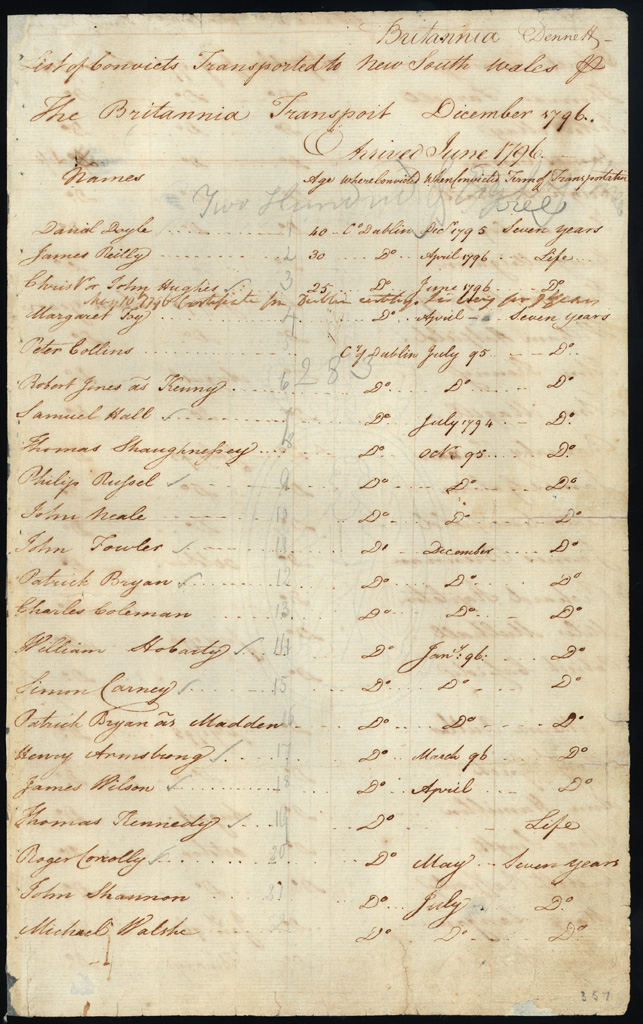 Britannia Dennett
List of Convicts Transported to New South Wales P
The Britannia Transport December 1796.
Arrived June 1796.
Names Age Where Convicted When Convicted Term of Transportation
Two Hundred Eighty Three
David Doyle 1 40 Co. Dublin Decr. 1795 Seven years
James Reilly 2 30 Do April 1796 Life
Chrisr. or John Hughes 3 25 Do June 1796 Do.
May 10 1796 Certificate from Dublin certifying for 7 years
Margaret 4 Do April Seven years
Peter Collins Cy. Dublin July 95 Do
283
Robert Jones as Kenny 6 Do Do Do
Samuel Hall 7 Do July 1794 Do.
Thomas Shaughnessey 8 Do Octr. 95 Do.
Philip Russel 9 Do Do Do.
John Neale 10 Do Do Do
John Fowler 11 Do December Do
Patrick Bryan 12 Do Do Do
Charles Coleman 13 Do Do Do
William Hobarty 14 Do Jany. 96. Do
Simon Carney 15 Do Do Do
Patrick Bryan as Madden 16 Do Do Do
Henry Armstrong 17 Do March 96 Do
James Wilson 18 Do April Do
Thomas Kennedy 19 Do Life
Roger Conolly 20 Do May Seven years
John Shannon Do July Do.
Michael Walshe Do Do Do
357